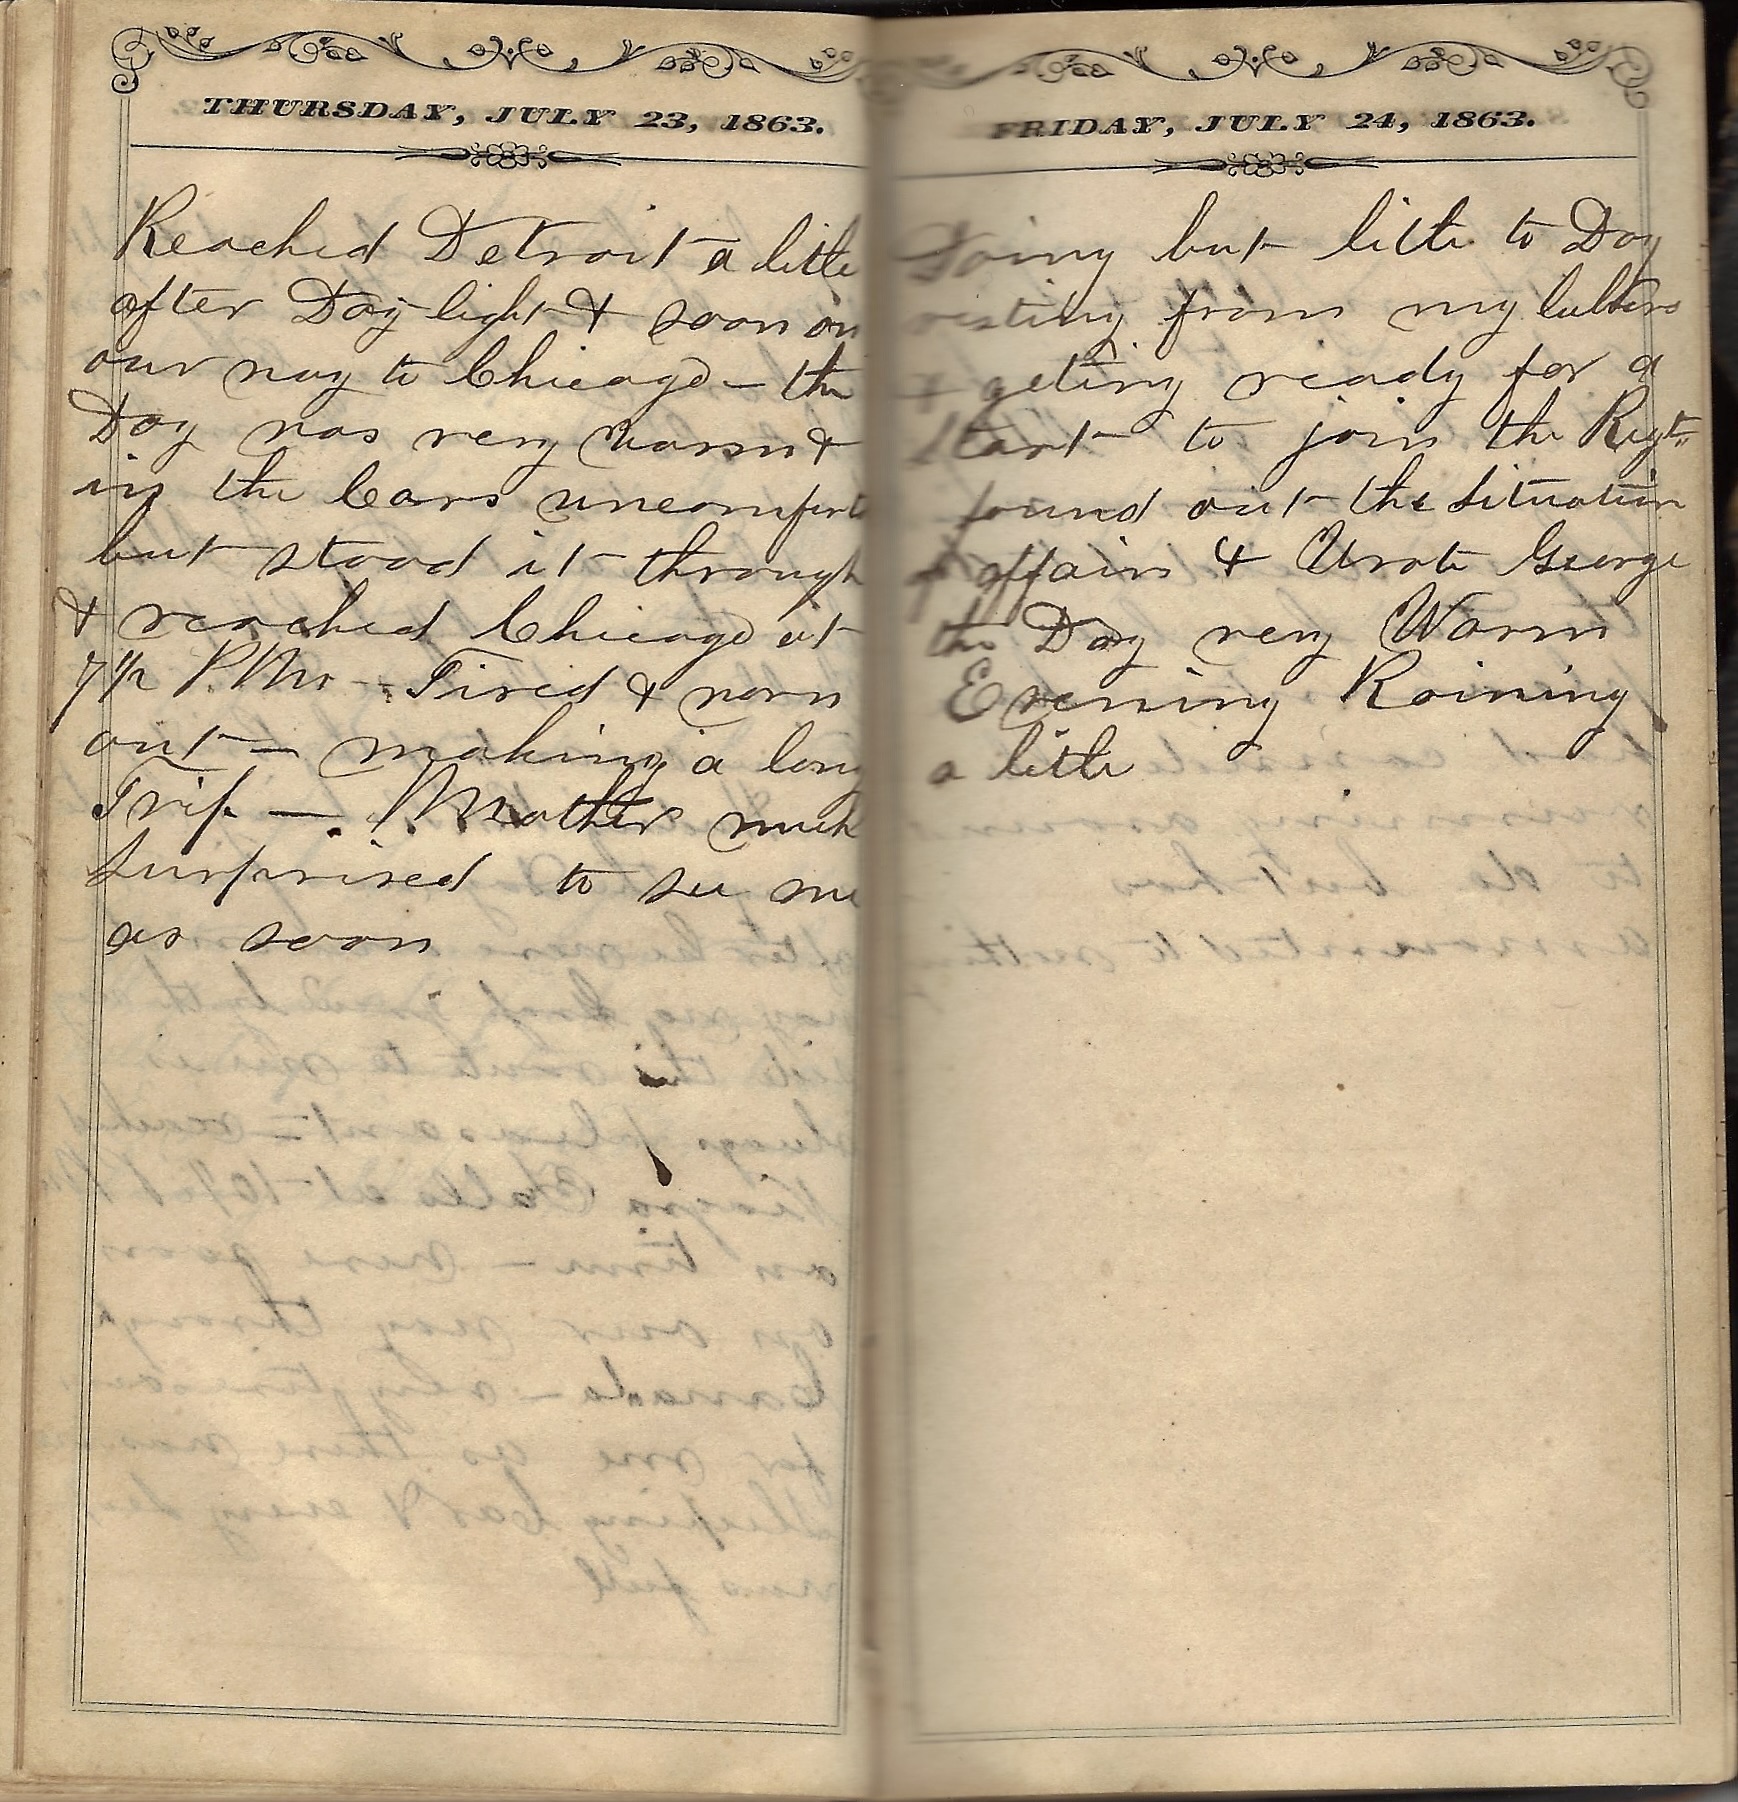 THURSDAY, JULY 23, 1863.
Reached Detroit a little
after Day light & soon on
our way to Chicago – the
Day was very warm &
in the Cars uncomfort
but stood it through
& reached Chicago at
7 1/2 P.M. – Tired & worn
out – making a long
Trip – . Mother much
surprised to see me
as soon
FRIDAY, JULY 24, 1863.
Doing but little to Day
resting from my
& geting ready for a
Start to join the Regt.
found out the Situation
of affairs & Wrote George
the Day very Warm
Evening Raining
a little